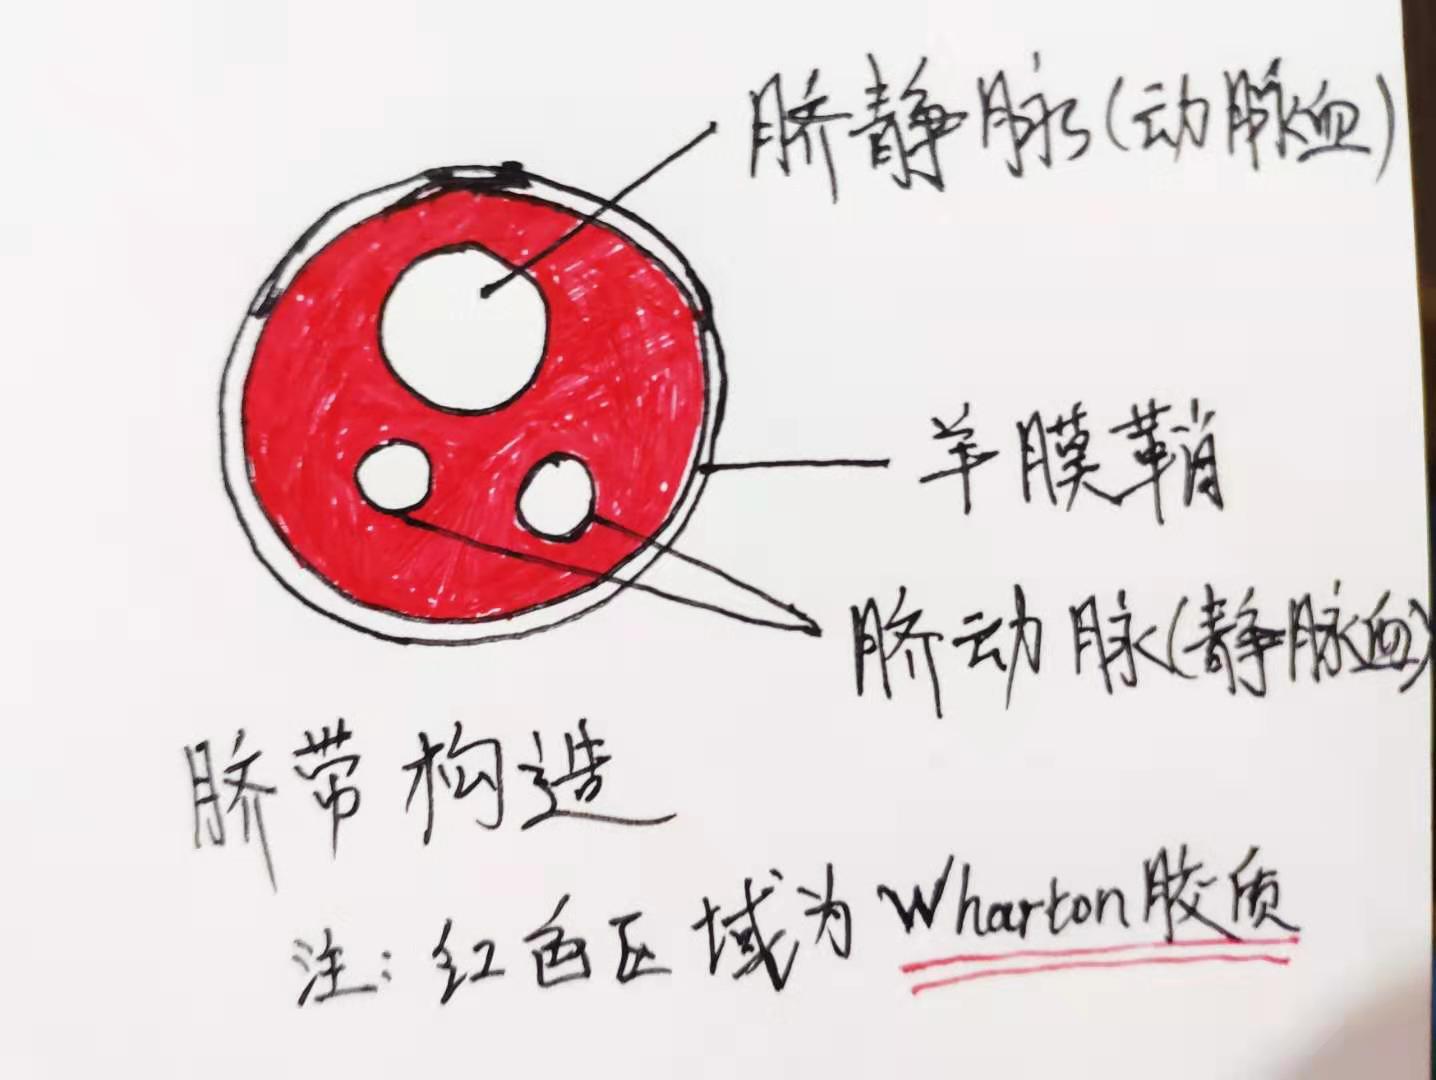 脐静脉(动脉血)
羊膜鞘
脐动脉(静脉血)
脐带构造
注:红色区域为Wharton胶质